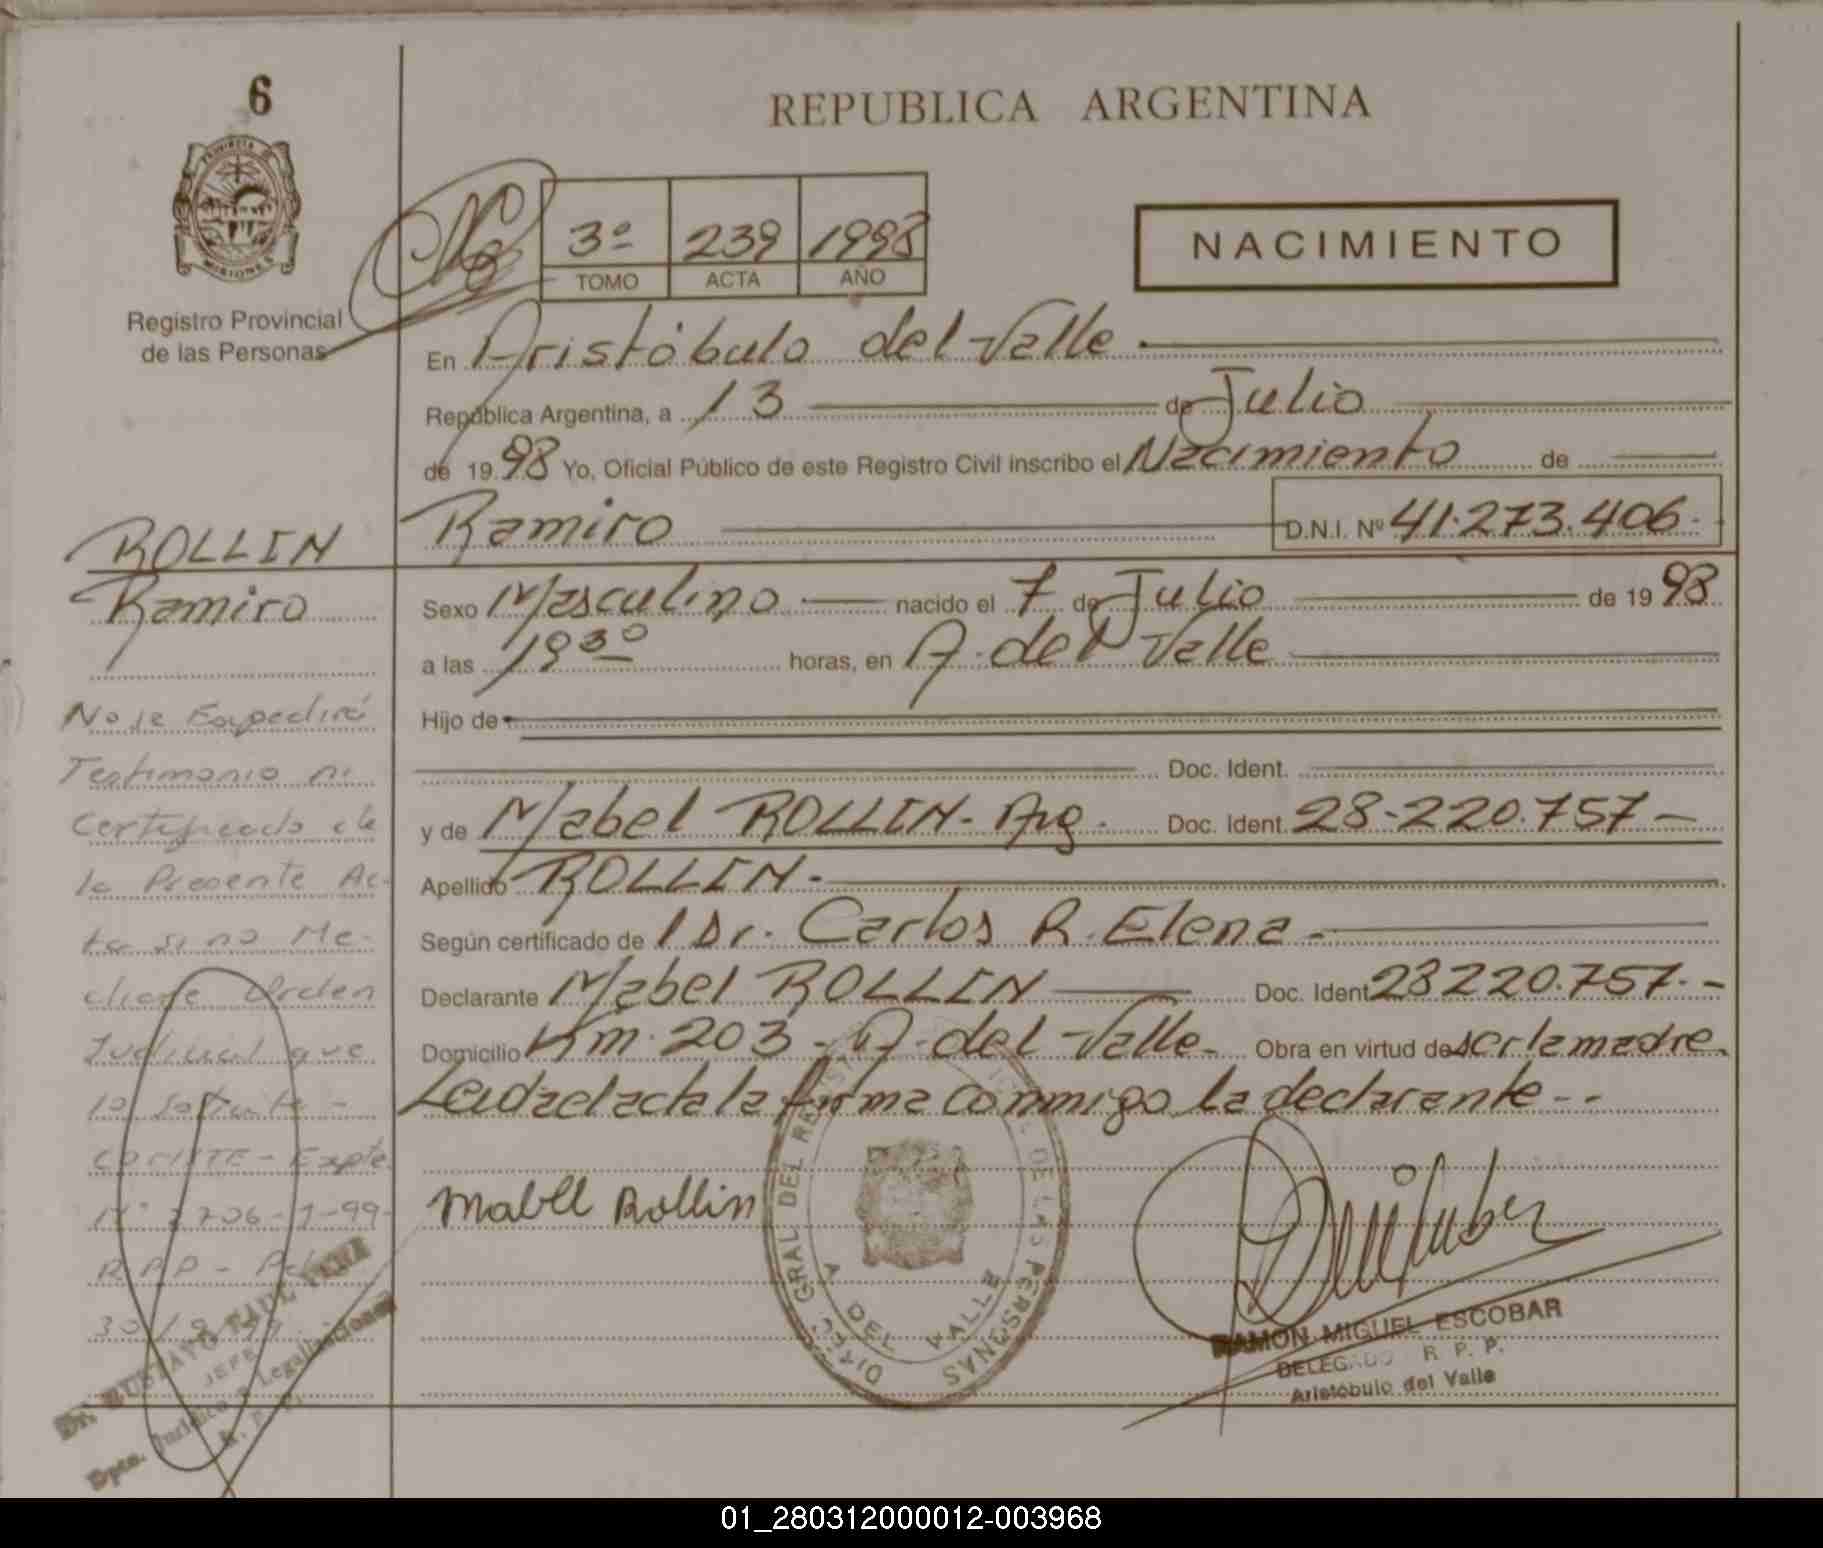 6
REPUBLICA ARGENTINA
PROVINCIA DE
MISIONES
Registro Provincial
de las Personas
3º 239 1998
TOMO ACTA AÑO
NACIMIENTO
En Aristóbulo del Valle
República Argentina, a 13 de Julio
de 1998 Yo, Oficial Público de este Registro Civil inscribo el Nacimiento de
Ramiro D.N.I. Nº 41.273.406.-
ROLLIN
Ramiro
Sexo Masculino nacido el 7 de Julio de 1998
a las 19 30 horas, en A. del Valle
Hijo de
Doc. Ident.
y de Mabel ROLLIN - Arg. Doc. Ident. 28.220.757 -
Apellido ROLLIN -
Según certificado de l Dr. Carlos R. Elena -
Declarante Mabel ROLLIN Doc. Ident 28220.757.-
Domicilio Km. 203 - A. del Valle - Obra en virtud de ser la madre.
Leida el acta la firma conmigo la declarante - -
No se Expedirá
Testimonio ni
Certificado de
la Presente Ac-
ta si no Me-
diare Orden
Judicial que
lo
Expte.
Nº 3706-1-99-
R.P.P -
Mabel Rollin
DIREC. GRAL DEL REGISTRO DE LAS PERSONAS
A DEL VALLE
RAMON MIGUEL ESCOBAR
DELEGADO R. P. P.
Aristóbulo del Valle
JEFE
Dpto. Jurídico y Legalizaciones
R. P. P.
01_280312000012-003968